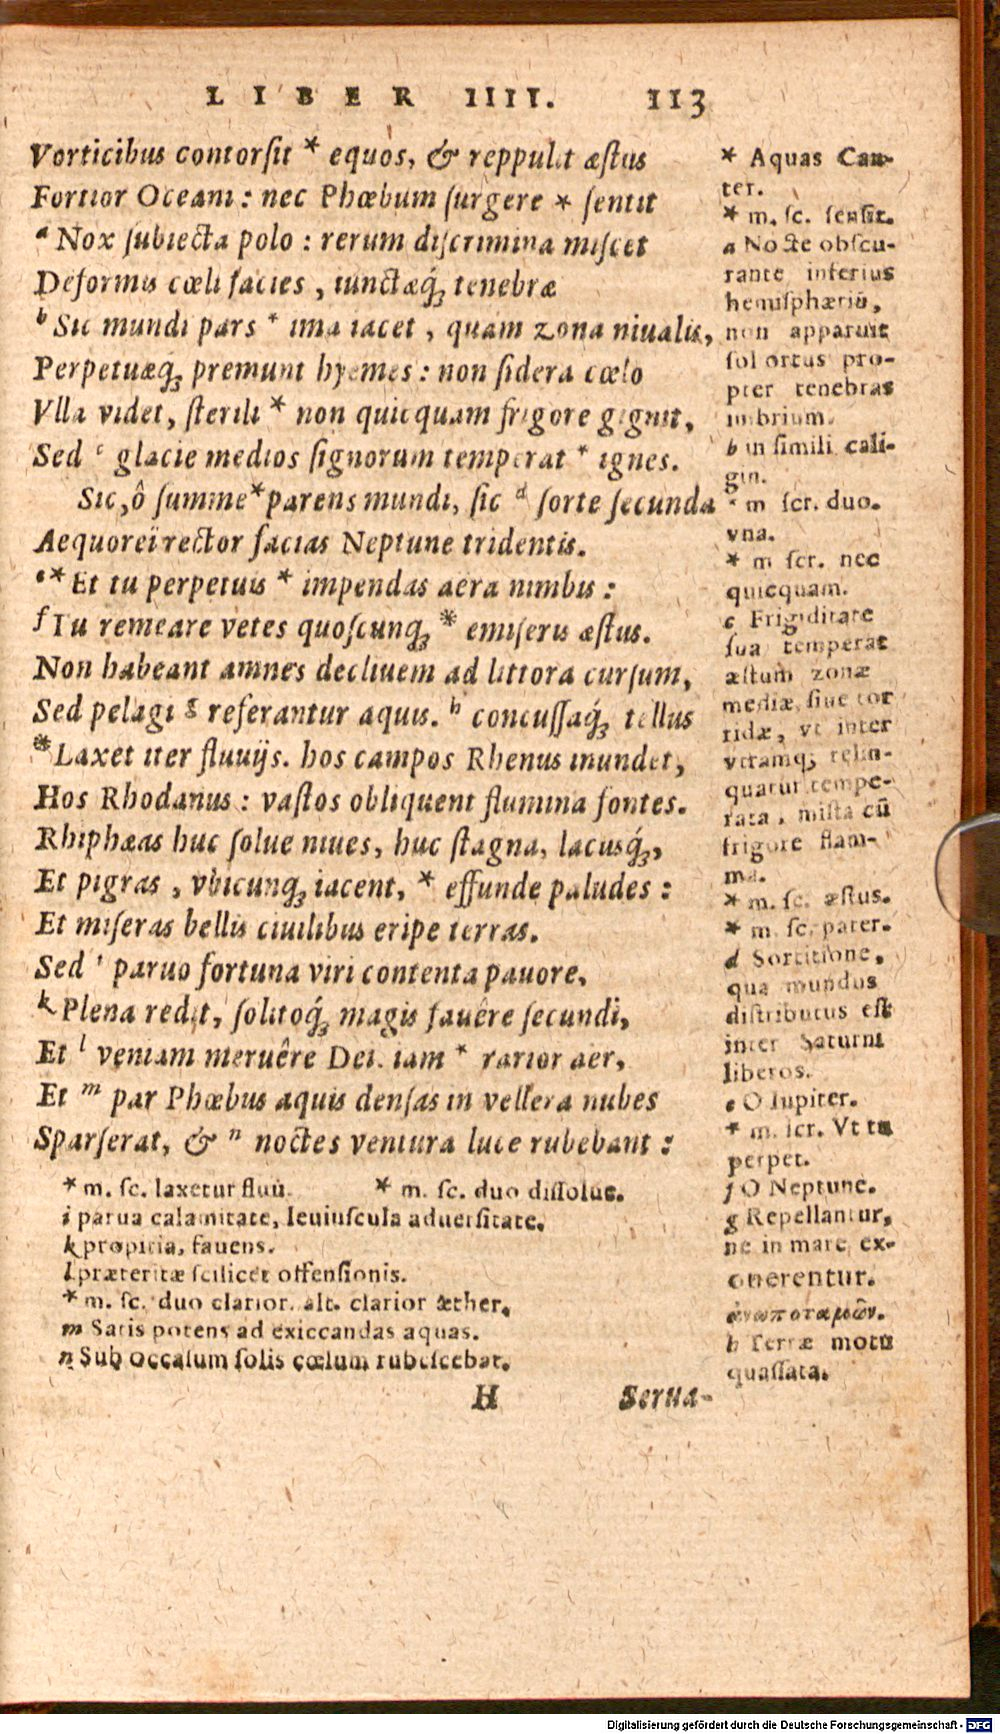 LIBER IIII. 113
Vorticibus contorsit * equos, & reppulit æstus
Fortior Oceani: nec Phœbum surgere * sentit
a Nox subiecta polo: rerum discrimina miscet
Deformis cœli facies, iunctæq́; tenebræ
b Sic mundi pars * ima iacet, quam zona niualis,
Perpetuæq́; premunt hyemes: non sidera cœlo
Vlla videt, sterili * non quicquam frigore gignit,
Sed c glacie medios signorum temperat * ignes.
Sic, ô summe * parens mundi, sic d sorte secunda
Aequoreï rector facias Neptune tridentis.
e * Et tu perpetuis * impendas aëra nimbis:
f Tu remeare vetes quoscunq; * emiseris æstus.
Non habeant amnes decliuem ad littora cursum,
Sed pelagi g referantur aquis. h concussaq́; tellus
* Laxet iter fluuijs. hos campos Rhenus inundet,
Hos Rhodanus: vastos obliquent flumina fontes.
Rhiphæas huc solue niues, huc stagna, lacusq́;,
Et pigras, vbicunq; iacent, * effunde paludes:
Et miseras bellis ciuilibus eripe terras.
Sed i paruo fortuna viri contenta pauore,
k Plena redit, solitoq́; magis fauêre secundi,
Et l veniam meruêre Dei. iam * rarior aer,
Et m par Phœbus aquis densas in vellera nubes
Sparserat, & n noctes ventura luce rubebant:
* m. sc. laxetur fluu. * m. sc. duo dissolue.
i parua calamitate, leuiuscula aduersitate.
k propitia, fauens.
l præteritæ scilicet offensionis.
* m. sc. duo clarior. alt. clarior æther.
m Satis potens ad exiccandas aquas.
n Sub occasum solis cœlum rubescebat.
H Serua-
* Aquas Can-
ter.
* m. sc. sensit.
a Nocte obscu-
rante inferius
hemisphæriū,
non apparuit
sol ortus pro-
pter tenebras
imbrium.
b in simili cali-
gin.
* m scr. duo.
vna.
* m scr. nec
quicquam.
c Frigiditate
sua temperat
æstum zonæ
mediæ, siue tor
ridæ, vt inter
vtramq; relin-
quatur tempe-
rata, mista cū
frigore flam-
ma.
* m. sc. æstus.
* m. sc. pater.
d Sortitione,
qua mundus
distributus est
inter Saturni
liberos.
e O Iupiter.
* m. scr. Vt tu
perpet.
f O Neptune.
g Repellantur,
ne in mare ex-
onerentur.
h terræ motu
quassata.
Digitalisierung gefördert durch die Deutsche Forschungsgemeinschaft - DFG